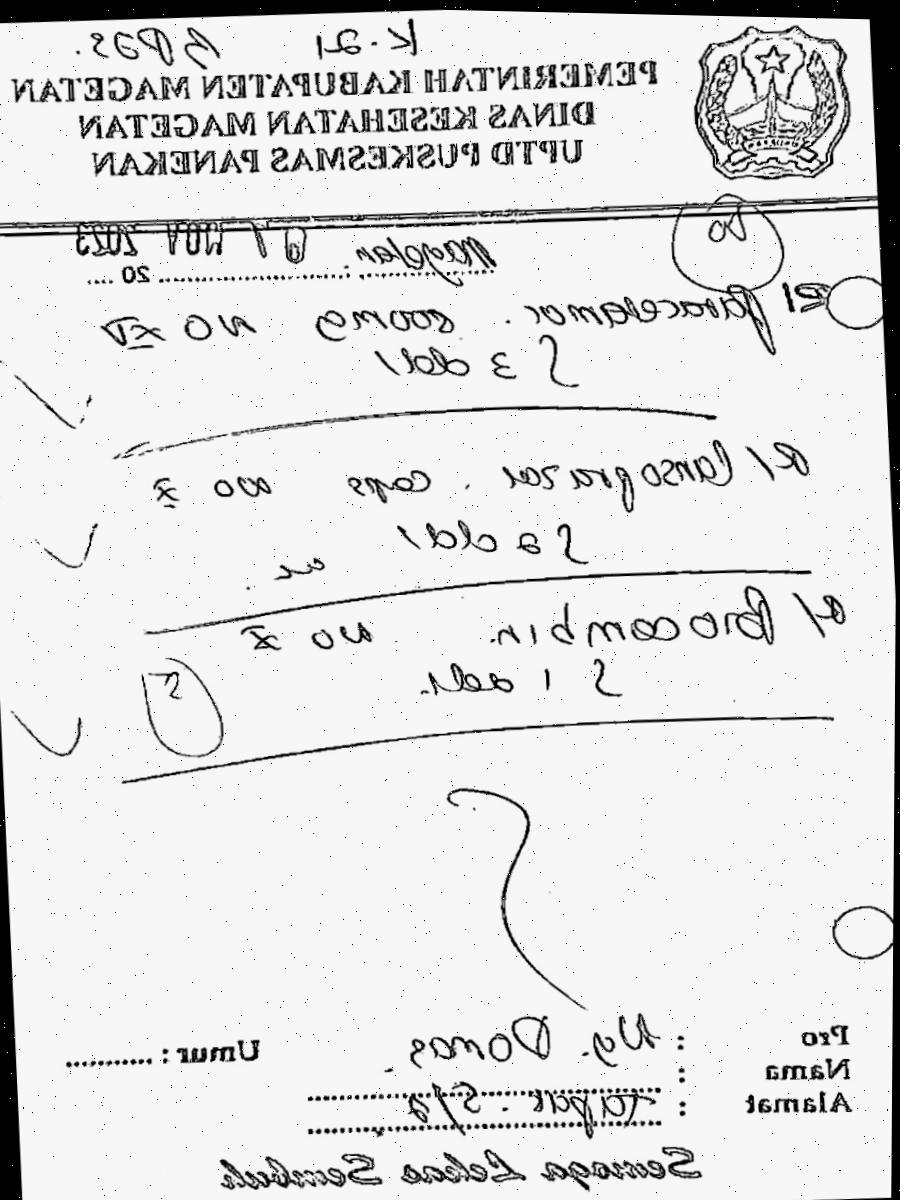 K-21 BPJS.
PEMERINTAH KABUPATEN MAGETAN
DINAS KESEHATAN MAGETAN
UPTD PUSKESMAS PANEKAN
Magetan, 01 NOV 2023
20
R/ Paracetamol. 500mg NO XV
S 3 dd 1
R/ Lansoprazol. caps NO X
S 2 dd 1
ac.
R/ Biocombin. NO X
S 1 dd 1.
Pro : Ny. Donas. Umur :
Nama :
Alamat : Tapak. 5/2
Semoga Lekas Sembuh